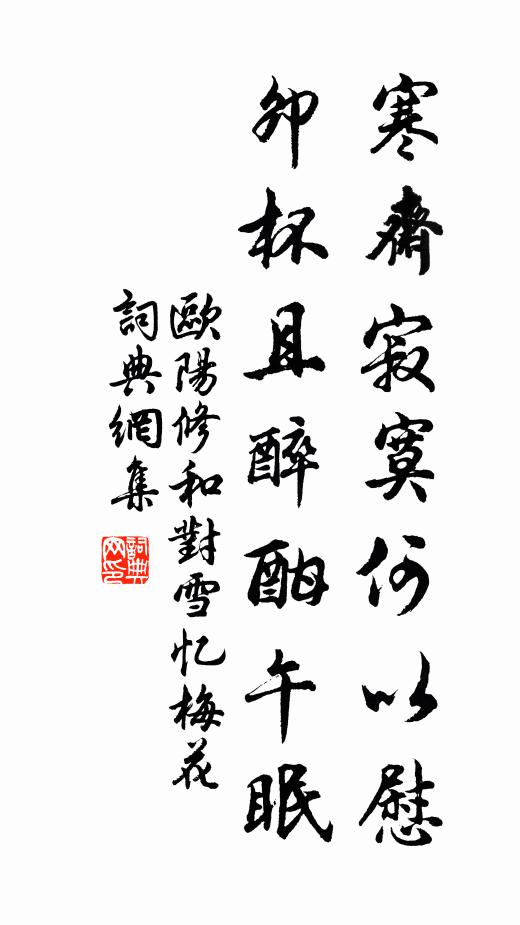 寒齋寂寞何以慰
卯杯且醉酣午眠
歐陽修和對雪忆梅花
詞典網集
詞典网印